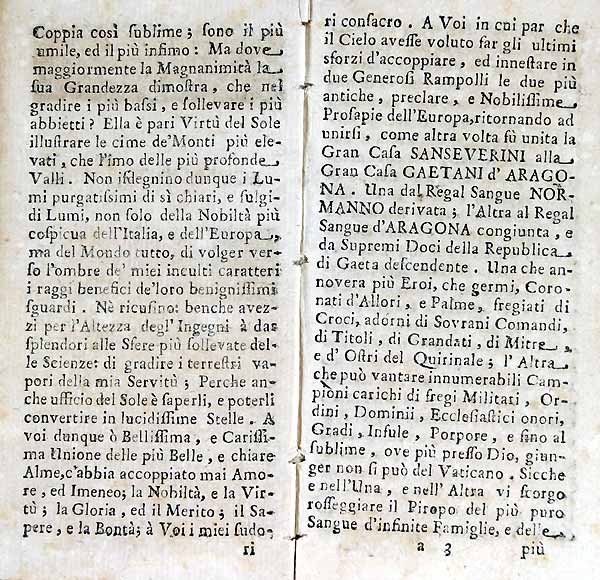 Coppia così sublime; sono il più
umile, ed il più infimo: Ma dove
maggiormente la Magnanimità la
sua Grandezza dimostra, che nel
gradire i più bassi, e sollevare i più
abbietti? Ella è pari Virtù del Sole
illustrare le cime de'Monti più ele-
vati, che l'imo delle più profonde
Valli. Non isdegnino dunque i Lu-
mi purgatissimi di sì chiari, e fulgi-
di Lumi, non solo della Nobiltà più
cospicua dell'Italia, e dell'Europa,
ma del Mondo tutto, di volger ver-
so l'ombre de' miei inculti caratteri
i raggi benefici de'loro benignissimi
sguardi. Nè ricusino: benche avez-
zi per l'Altezza degl'Ingegni à dar
splendori alle Sfere più sollevate del-
le Scienze: di gradire i terrestri va-
pori della mia Servitù; Perche an-
che ufficio del Sole è saperli, e poterli
convertire in lucidissime Stelle. A
voi dunque ò Bellissima, e Carissi-
ma Unione delle più Belle, e chiare
Alme, c'abbia accoppiato mai Amo-
re, ed Imeneo; la Nobiltà, e la Vir-
tù; la Gloria, ed il Merito; il Sa-
pere, e la Bontà; à Voi i miei sudo-
ri
ri consacro. A Voi in cui par che
il Cielo avesse voluto far gli ultimi
sforzi d'accoppiare, ed innestare in
due Generosi Rampolli le due più
antiche, preclare, e Nobilissime
Prosapie dell'Europa, ritornando ad
unirsi, come altra volta fù unita la
Gran Casa SANSEVERINI alla
Gran Casa GAETANI d' ARAGO-
NA. Una dal Regal Sangue NOR-
MANNO derivata; l'Altra al Regal
Sangue d'ARAGONA congiunta, e
da Supremi Doci della Republica
di Gaeta descendente. Una che an-
novera più Eroi, che germi, Coro-
nati d'Allori, e Palme, fregiati di
Croci, adorni di Sovrani Comandi,
di Titoli, di Grandati, di Mitre,
e d' Ostri del Quirinale; l' Altra
che può vantare innumerabili Cam-
pioni carichi di fregi Militari, Or-
dini, Dominii, Ecclesiastici onori,
Gradi, Insule, Porpore, e sino al
sublime, ove più presso Dio, giun-
ger non si può del Vaticano. Sicche
e nell'Una, e nell' Altra vi scorgo
rosseggiare il Piropo del più puro
Sangue d'infinite Famiglie, e delle
a 3 più